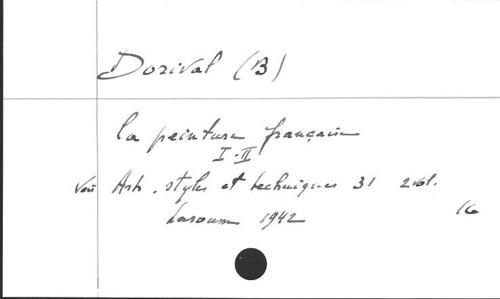 Dorival (B)
la peinture française
I-II
Voir Arts. styles et techniques 31 2 vol.
Larousse 1942
16